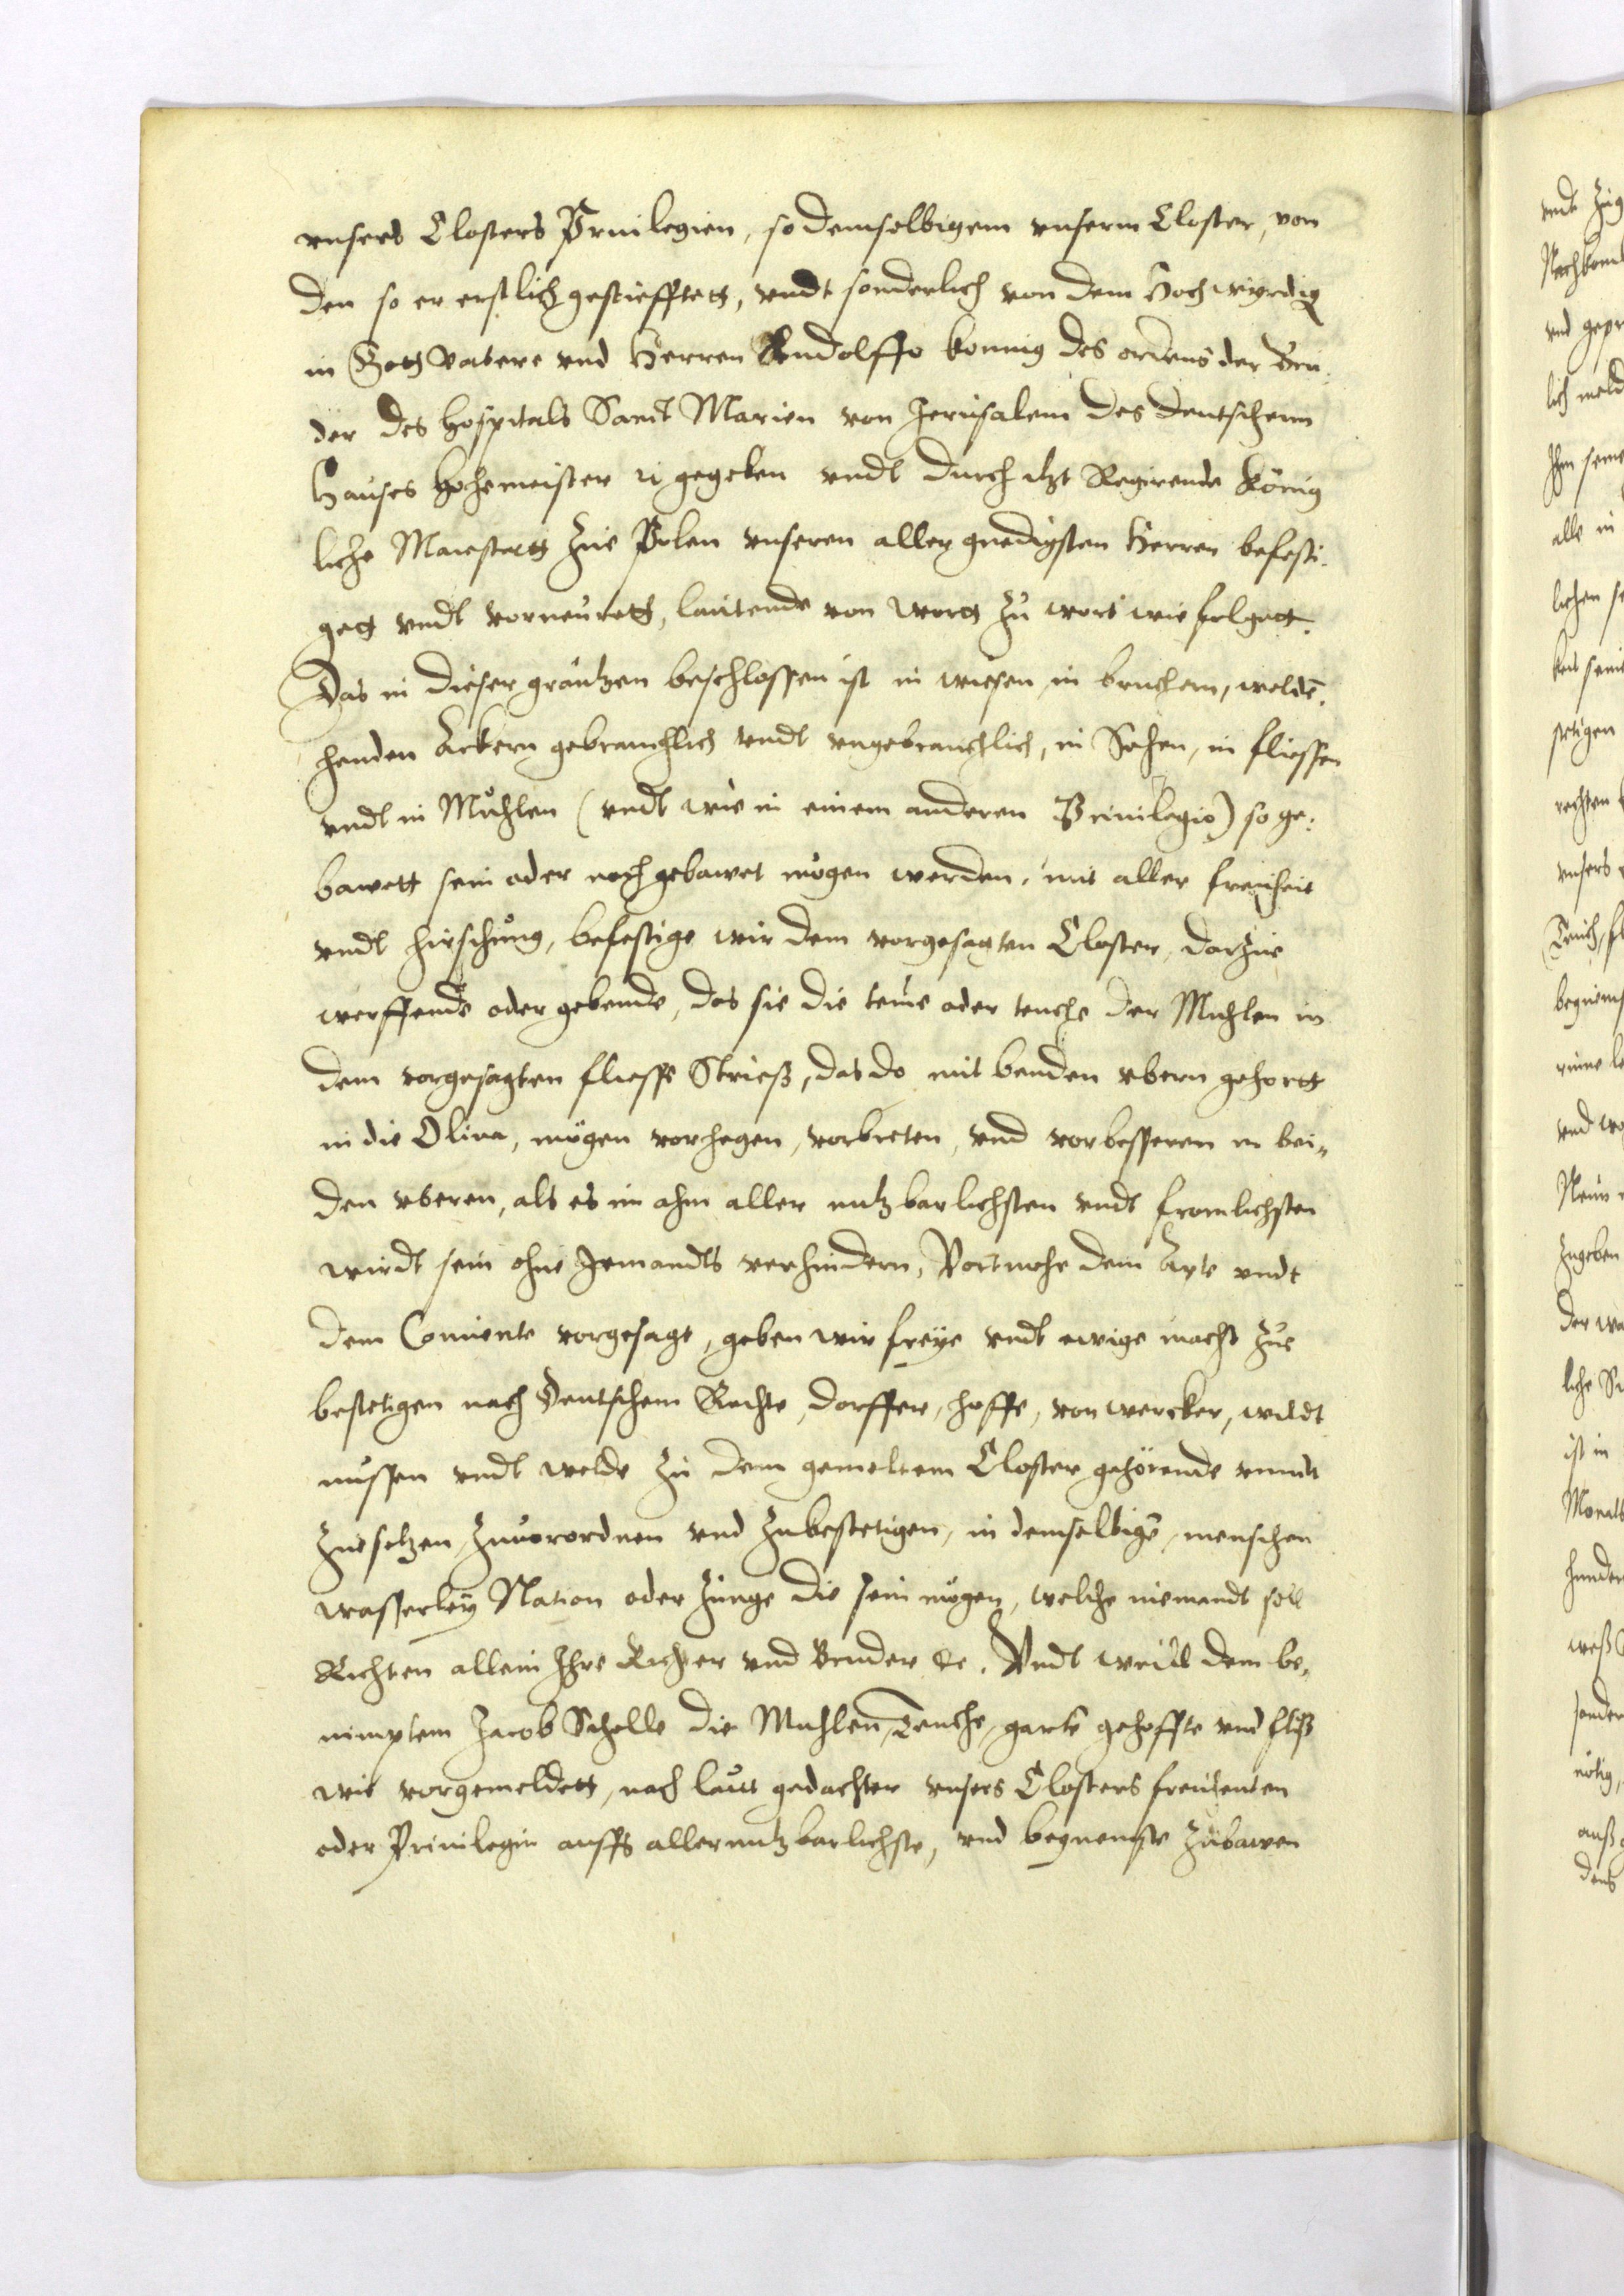 vnsers Closters Priuilegien, so demselbigem vnserm Closter, von
den so er erstlich gestiefftett, vndt sonderlich von dem Hochwyrdig
in Gott Vatere vnd Herren Ludolffo konnig des ordens der Bru¬
der des Hospitals Sanct Marien von Jerusalem des deutschenn
Hauses Hohemeister gegeben vndt durch itzt Regirende König
liche Maiestett Zue Polen vnseren aller gnedigsten Herren befesti¬
gett vndt vorneurett, lautende von wort zu wort wie folgett.
Das in dieser gräntzen beschlossen ist in wiesen, in bruchern, welde¯,
henden Äckern gebrauchlich vndt vngebrauchlich, in Sehen, in fliessen
vndt in Muhlen (vndt wie in einem anderen Priuilegio) so ge¬
bawett sein oder noch gebawet mögen werden, mit aller freiheit
vndt hirschung, befestige wir dem vorgesagten Closter, darzue
werffende oder gebende, das sie die teine oder teuche der Muhlen in
dem vorgesagten fliesse Strieß, das do mit benden vbern gehortt
in die Oliua, mögen vorhegen, vorbreten, vnd vorbesseren in bei¬
den vberen, als es im ahm aller nutzbarlichsten vndt fromlichsten
wirdt sein ohne Jemandts verhindern, Vortmehe dem Apte vndt
dem Conuente vorgesagt, geben wir freye vndt ewige macht zue
bestetigen nach Deutschem Rechte, dorffer, hoffe, vorwercker, wildt
nussen vndt welde zu dem gemeltem Closter gehörende vnndt
zuesetzen, zuuorordnen vnd zubestetigen, in demselbige¯, menschen
wasserley Nation oder Zunge die sein mögen, welche niemandt soll
Richten allein Ihre Richter vnd Bruder &c. Vndt weill dem be¬
nimptem Jacob Schelle die Muhlen, Teuche, garte¯ gehoffte vnd fliß
wie vorgemeldett, nach lautt gedachter vnsers Closters freiheiten
oder Priuilegin auffs allernutzbarlichste, vnd bequemste zubawen